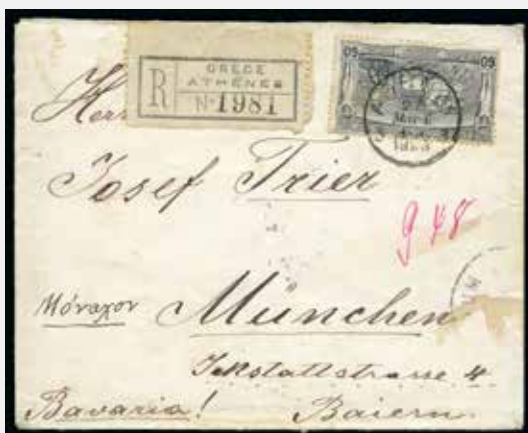 GRECE
ATHÈNES
R N° 1981
60 60
Herr
Josef Trier
948
Μόναχον München
Ickstattstrasse 4.
Bavaria! Baiern.